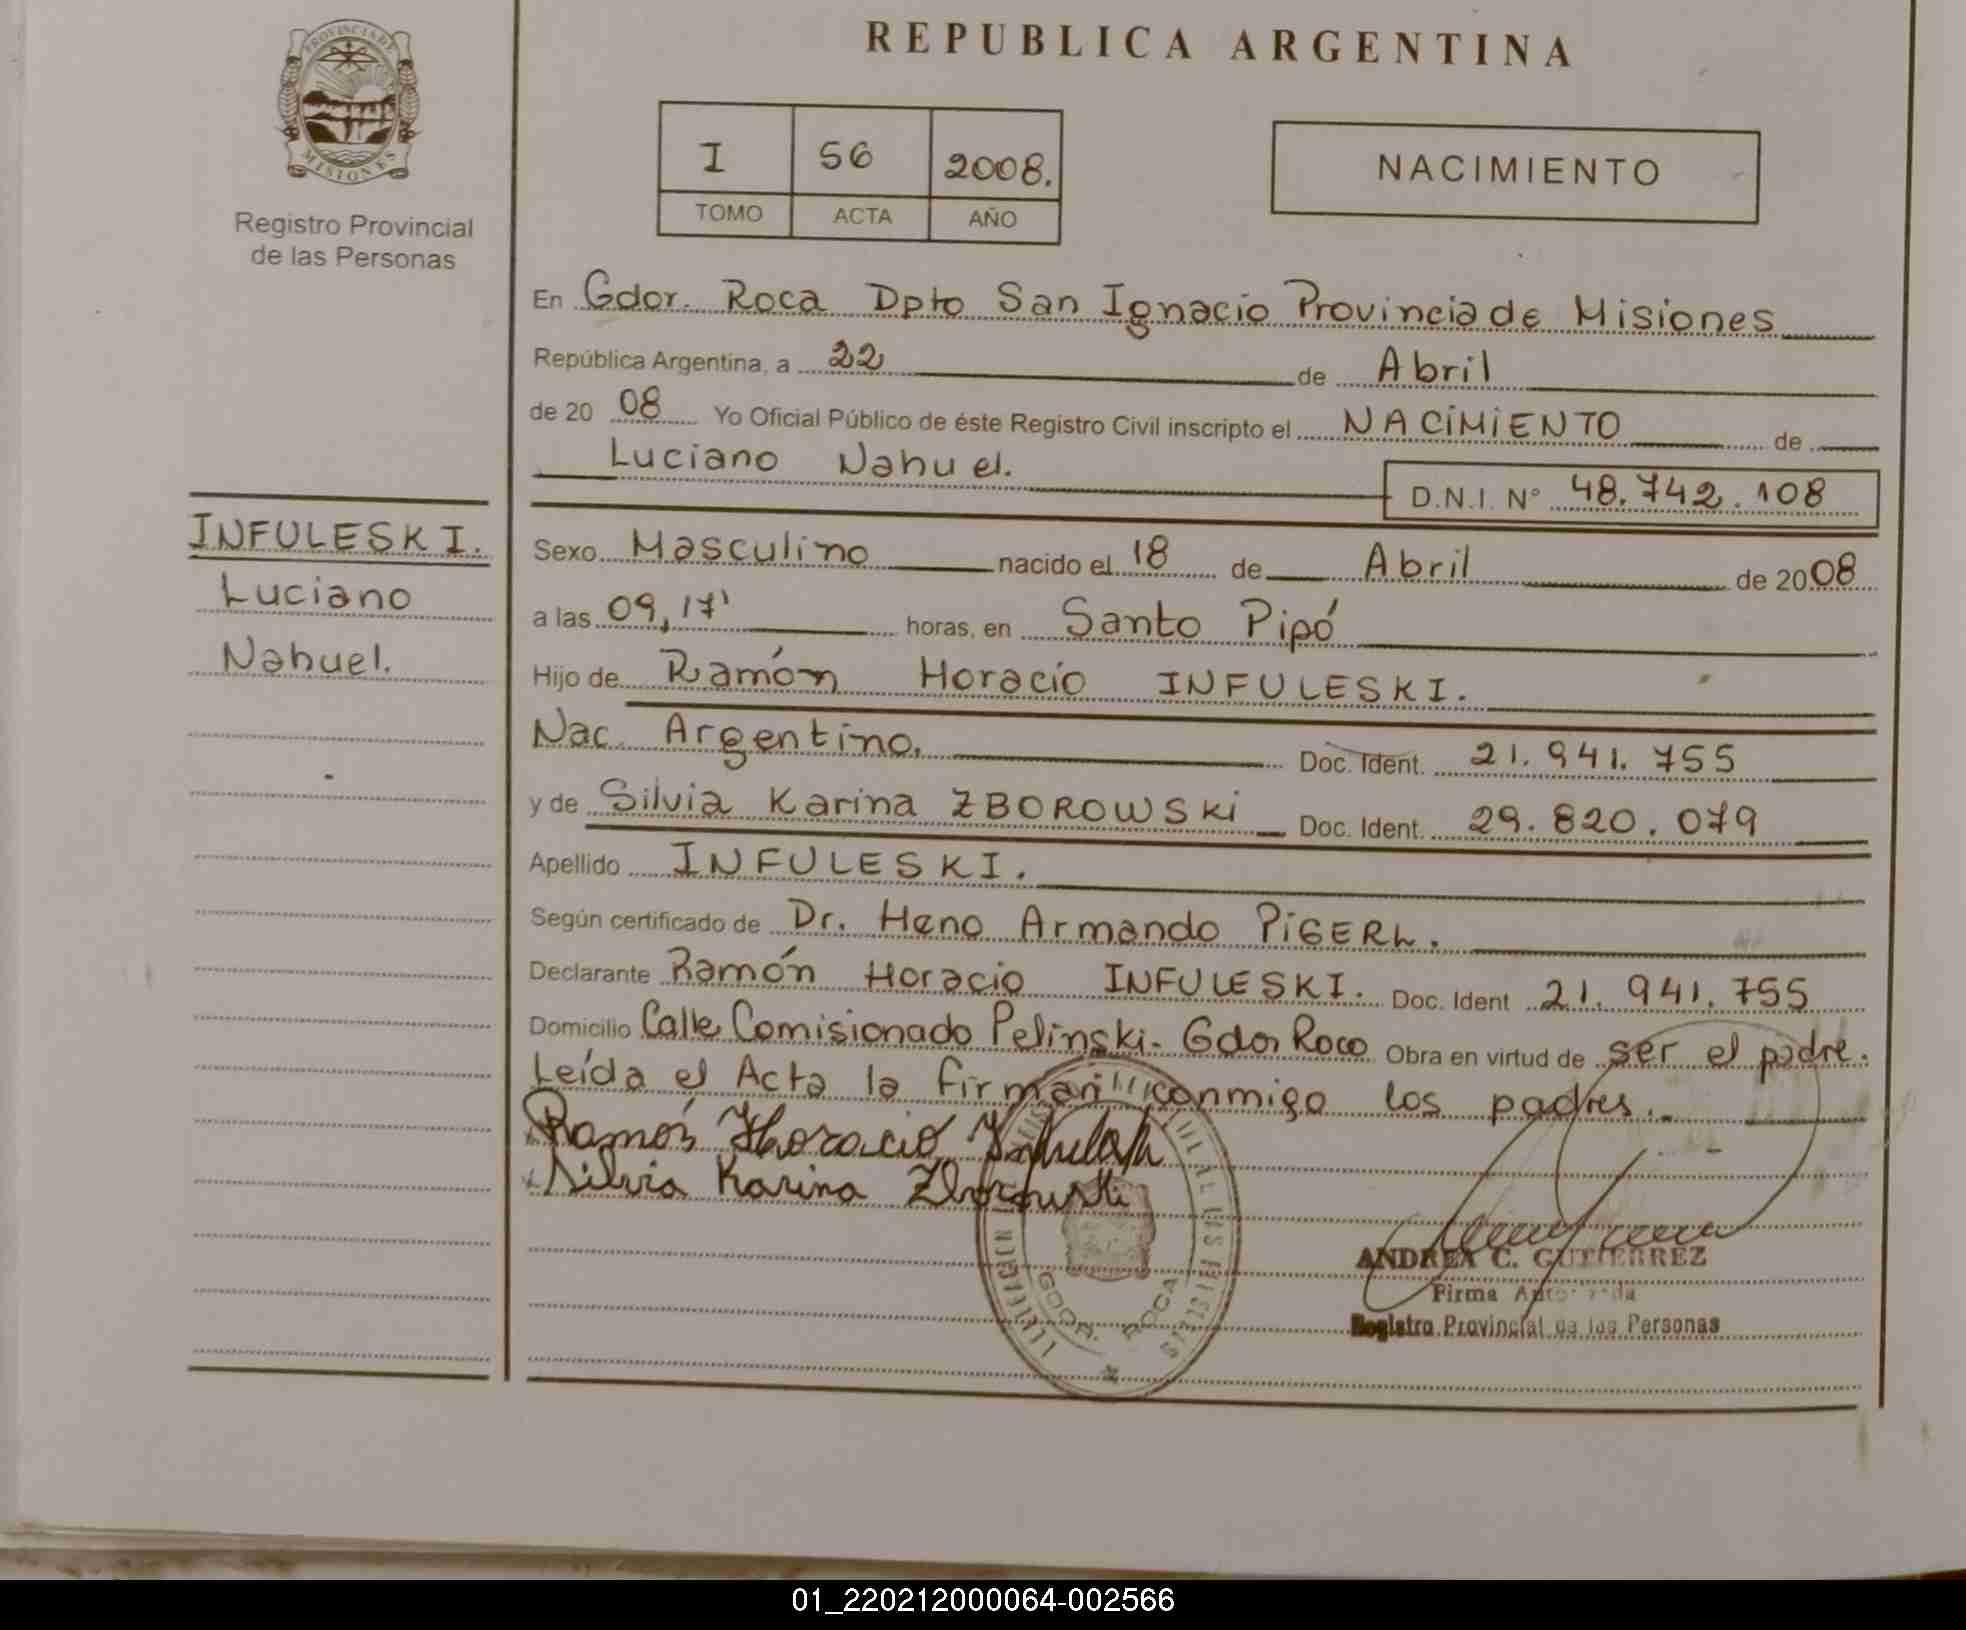 PROVINCIA DE
MISIONES
Registro Provincial
de las Personas
INFULESKI.
Luciano
Nahuel.
REPUBLICA ARGENTINA
I 56 2008.
TOMO ACTA AÑO
NACIMIENTO
En Gdor. Roca Dpto San Ignacio Provincia de Misiones
República Argentina, a 22 de Abril
de 20 08 Yo Oficial Público de éste Registro Civil inscripto el NACIMIENTO de
Luciano Nahuel.
D.N.I. N° 48.742.108
Sexo Masculino nacido el 18 de Abril de 2008
a las 09,17' horas, en Santo Pipó
Hijo de Ramón Horacio INFULESKI.
Nac. Argentino. Doc. Ident. 21.941.755
y de Silvia Karina ZBOROWSKI Doc. Ident. 29.820.079
Apellido INFULESKI.
Según certificado de Dr. Heno Armando
Declarante Ramón Horacio INFULESKI. Doc. Ident 21.941.755
Domicilio Calle Comisionado Pelinski- Gdor Roca Obra en virtud de ser el padre.
Leída el Acta la firman conmigo los padres.-
Ramón Horacio
Silvia Karina Zborowski
GDOR. ROCA
ANDREA C. GUTIERREZ
Firma Autorizada
Registro Provincial de las Personas
01_220212000064-002566